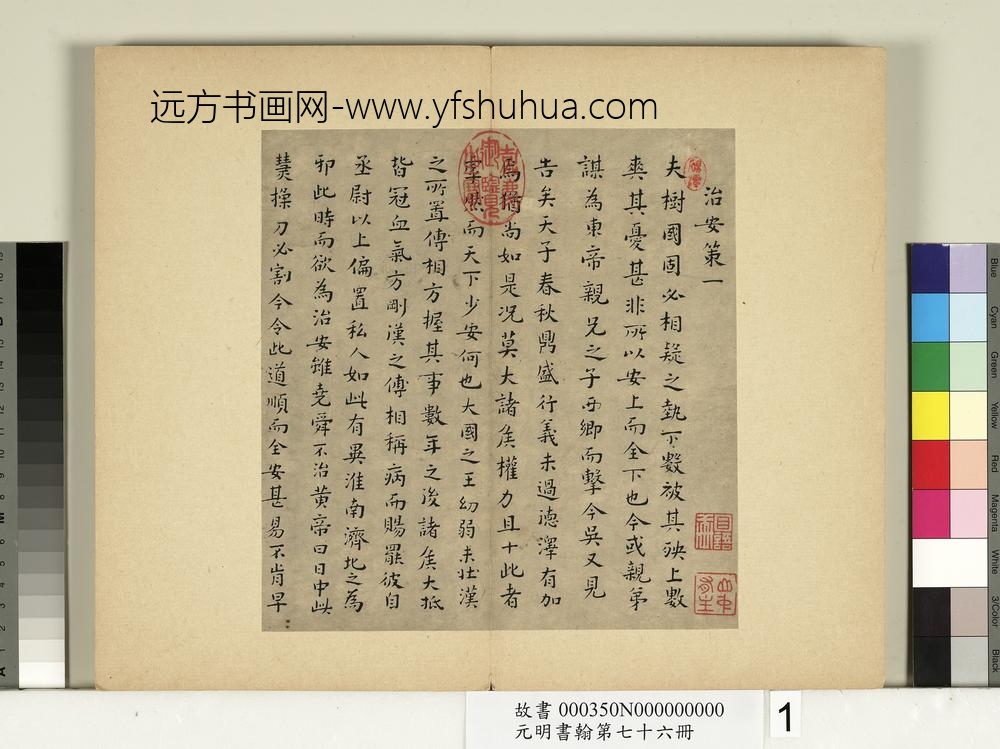 远方书画网-www.yfshuhua.com
治安策一
夫樹國固必相疑之埶下數被其殃上數
爽其憂甚非所以安上而全下也今或親弟
謀為東帝親兄之子西鄉而擊今吳又見
告矣天子春秋鼎盛行義未過德澤有加
焉猶尚如是況莫大諸侯權力且十此者
虖然而天下少安何也大國之王幼弱未壯漢
之所置傅相方握其事數年之後諸侯大抵
皆冠血氣方剛漢之傅相稱病而賜罷彼自
丞尉以上偏置私人如此有異淮南濟北之為
邪此時而欲為治安雖堯舜不治黃帝曰日中必
熭操刀必割今令此道順而全安甚易不肯早
故書 000350N000000000
元明書翰第七十六冊
1
Blue
Cyan
Green
Yellow
Red
Magenta
White
3/Color
Black